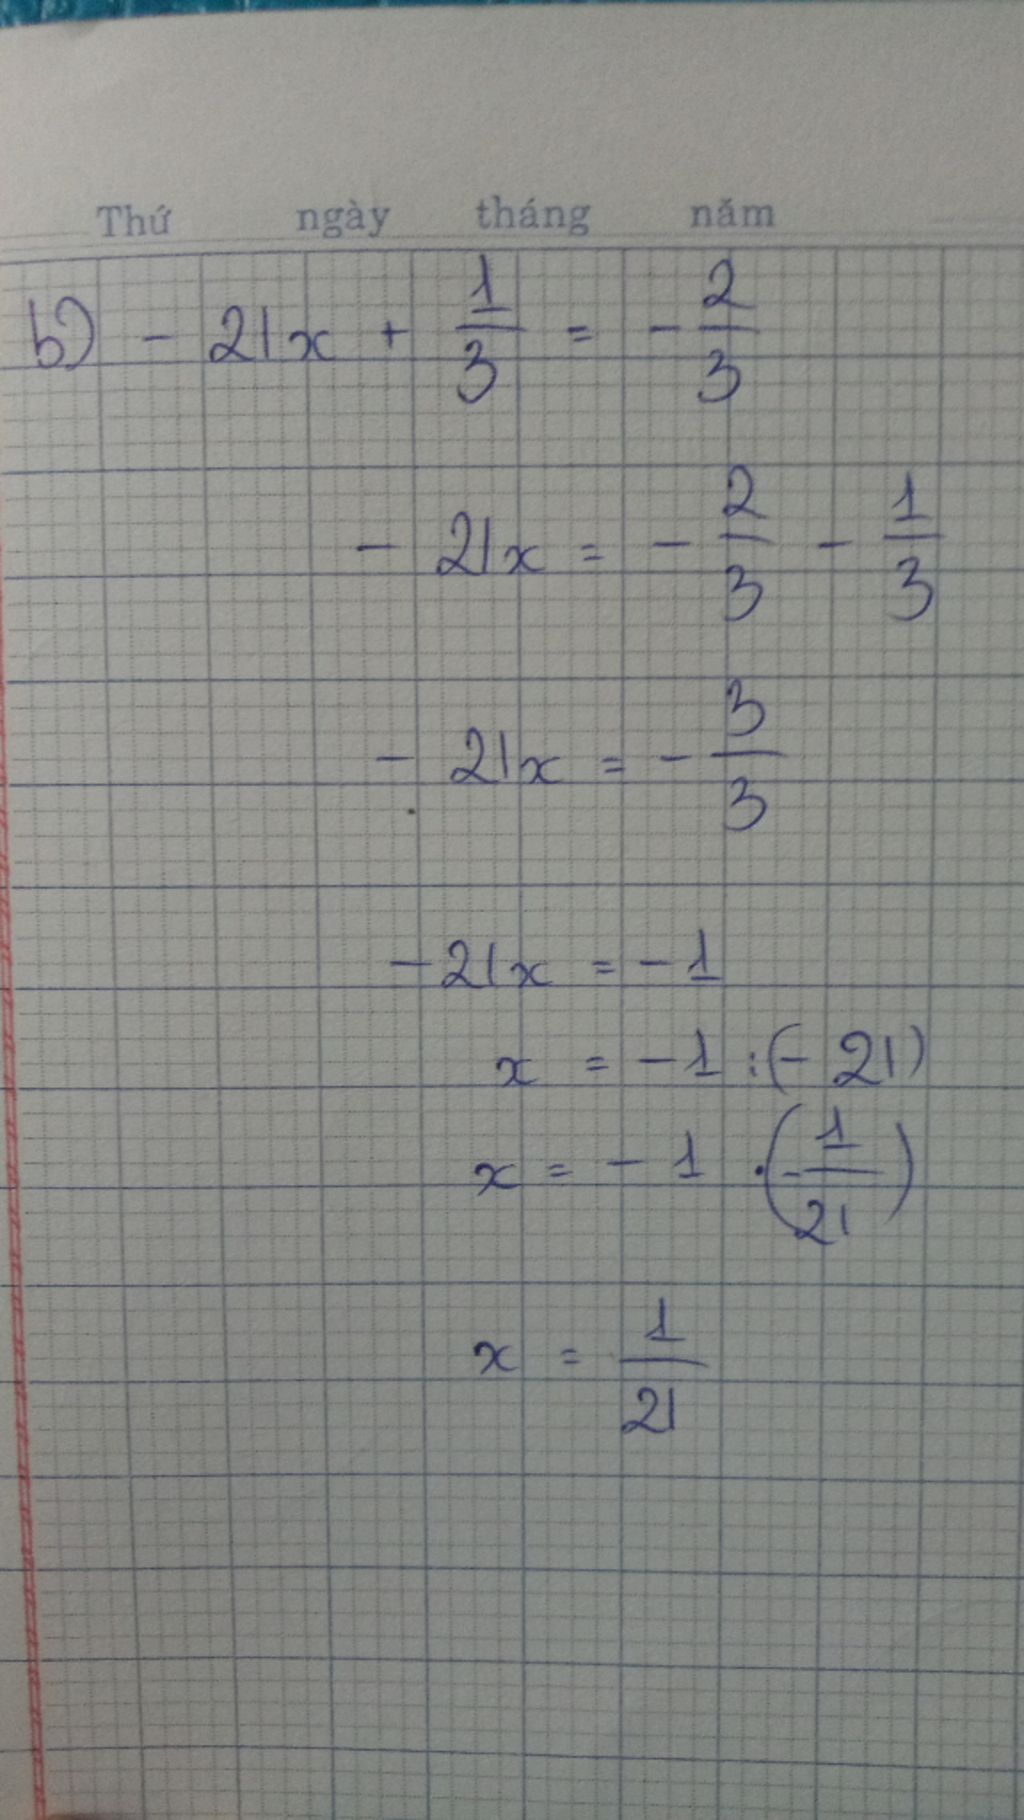 Thứ ngày tháng năm
b) - 21x + 1/3 = - 2/3
- 21x = - 2/3 - 1/3
- 21x = - 3/3
- 21x = - 1
x = - 1 : (- 21)
x = - 1 . (- 1/21)
x = 1/21